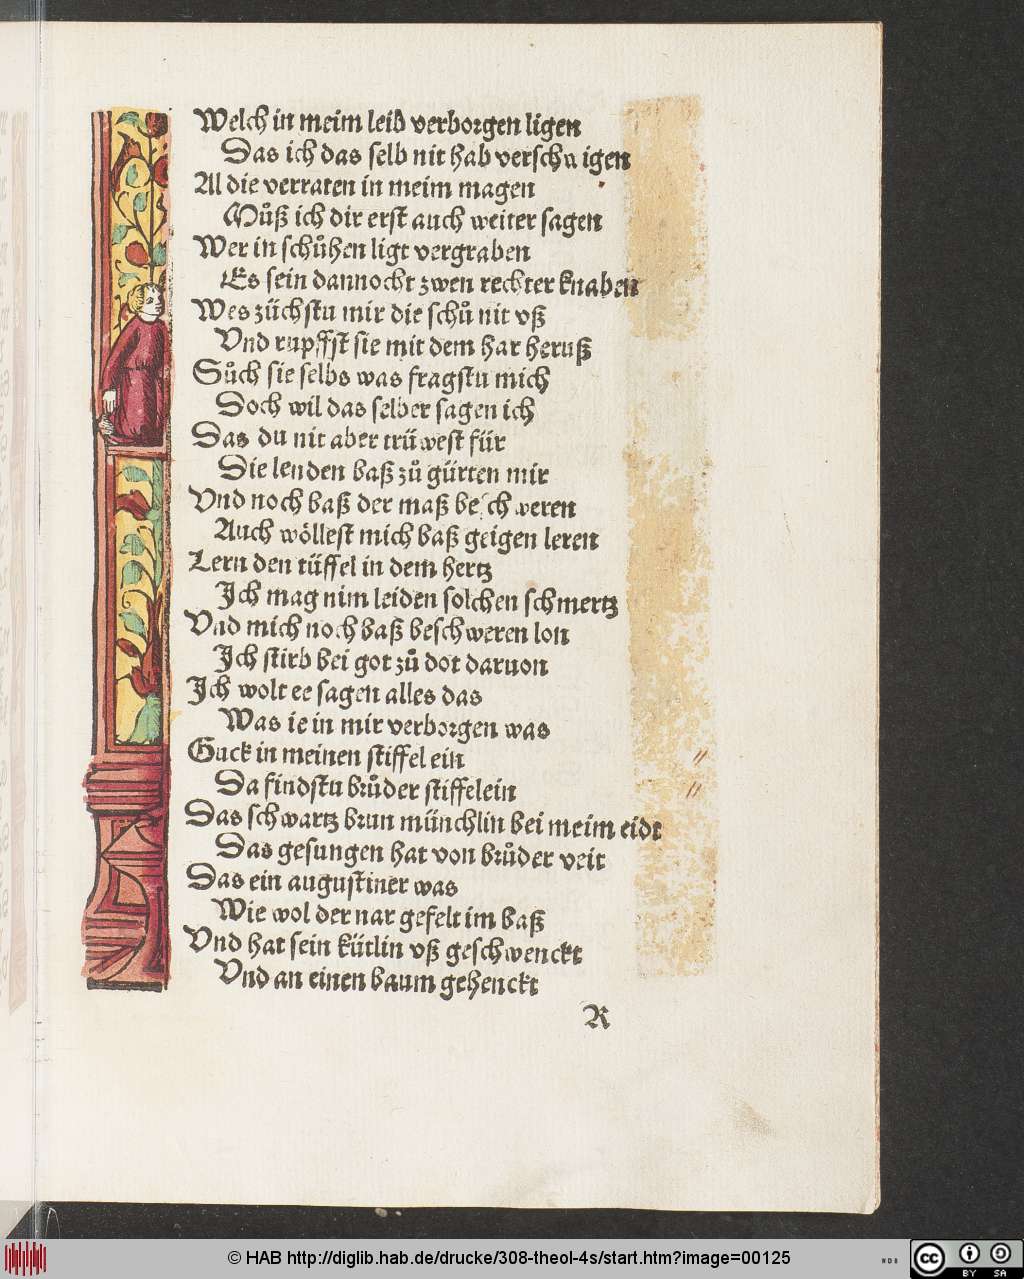 Welch in meim leib verborgen ligen
Das ich das selb nit hab verschwigen
Al die verraten in meim magen
Můß ich dir erst auch weiter sagen
Wer in schůhen ligt vergraben
Es sein dannocht zwen rechter knaben
Wes züchstu mir die schů nit vß
Vnd rupffst sie mit dem har heruß
Sůch sie selbs was fragstu mich
Doch wil das selber sagen ich
Das du nit aber trüwest für
Die lenden baß zů gürten mir
Vnd noch baß der maß beschweren
Auch wöllest mich baß geigen leren
Lern den tüffel in dem hertz
Ich mag nim leiden solchen schmertz
Vnd mich noch baß beschweren lon
Ich stirb bei got zů dot daruon
Ich wolt ee sagen alles das
Was ie in mir verborgen was
Guck in meinen stiffel ein
Da findstu brůder stiffelein
Das schwartz brun münchlin bei meim eidt
Das gesungen hat von brůder veit
Das ein augustiner was
Wie wol der nar gefelt im baß
Vnd hat sein kütlin vß geschwenckt
Vnd an einen baum gehenckt
R
© HAB http://diglib.hab.de/drucke/308-theol-4s/start.htm?image=00125
WDB
cc BY SA